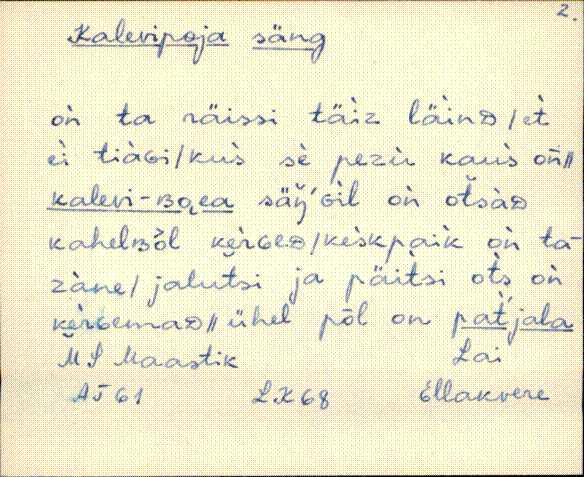 2.
Kalevipoja säng
oǹ ta räissi täìz läìnᴅ/et̀
eì tiàɢi/kus̀ sè pezìɪ kaus̀ oñ//
kalevi-ʙoea säŋ̆'ɢìl oǹ ot̆šàᴅ
kahelʙòl kèrɢeᴅ/kèskpaìk oǹ ta-
zàne/jalutsi ja päitsi ot̀s oǹ
kèrɢemaᴅ// ühel pōl on pat̆jala
M S Maastik Lai
AT 61 LK 68 Ellakvere